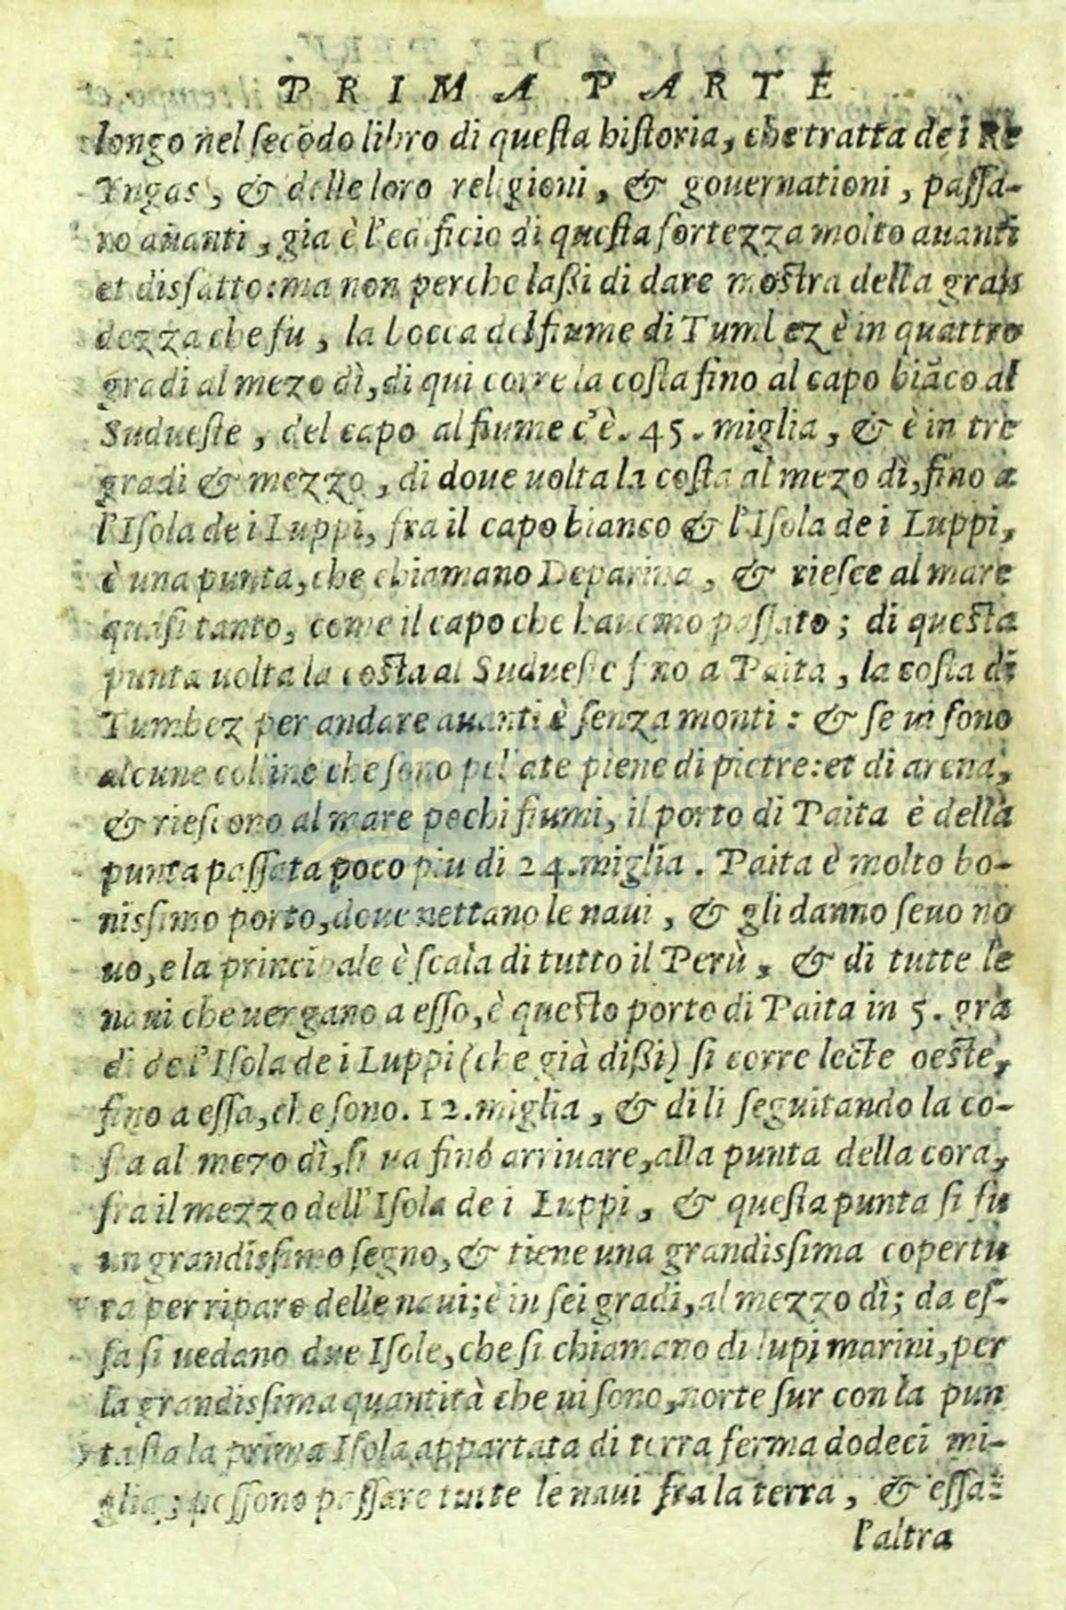 PRIMA PARTE
longo nel secōdo libro di questa historia, che tratta de i Re
Yngas, & delle loro religioni, & gouernationi, passa-
no auanti, gia è l'edificio di questa fortezza molto auanti
et disfatto: ma non perche lassi di dare mostra della gran
dezza che fù, la bocca del fiume di Tumbez è in quattro
gradi al mezo dì, di qui corre la costa fino al capo biāco al
Sudueste, del capo al fiume c'è. 45. miglia, & è in tre
gradi & mezzo, di doue uolta la costa al mezo dì, fino a
l'Isola de i Luppi, fra il capo bianco & l'Isola de i Luppi,
è una punta, che chiamano Deparina, & riesce al mare
quasi tanto, come il capo che hauemo passato; di questa
punta uolta la costa al Sudueste fino a Paita, la costa di
Tumbez per andare auanti è senza monti: & se ui sono
alcune colline che sono pelate piene di pietre: et di arena,
& riescono al mare pochi fiumi, il porto di Paita è della
punta passata poco piu di 24. miglia. Paita è molto bo-
nissimo porto, doue nettano le naui, & gli danno seuo no
uo, e la principale è scala di tutto il Perù, & di tutte le
naui che uergano a esso, è questo porto di Paita in 5. gra
di de l'Isola de i Luppi (che già dissi) si corre lecte oeste,
fino a essa, che sono. 12. miglia, & di li seguitando la co-
sta al mezo dì, si ua finò arriuare, alla punta della cora,
fra il mezzo dell'Isola de i Luppi, & questa punta si fu
un grandissimo segno, & tiene una grandissima copertu
ra per riparo delle naui; è in sei gradi, al mezzo dì; da es-
sa si uedano due Isole, che si chiamano di lupi marini, per
la grandissima quantità che ui sono, norte sur con la pun
ta sta la prima Isola appartata di terra ferma dodeci mi-
glia; possono passare tutte le naui fra la terra, & essa:
l'altra